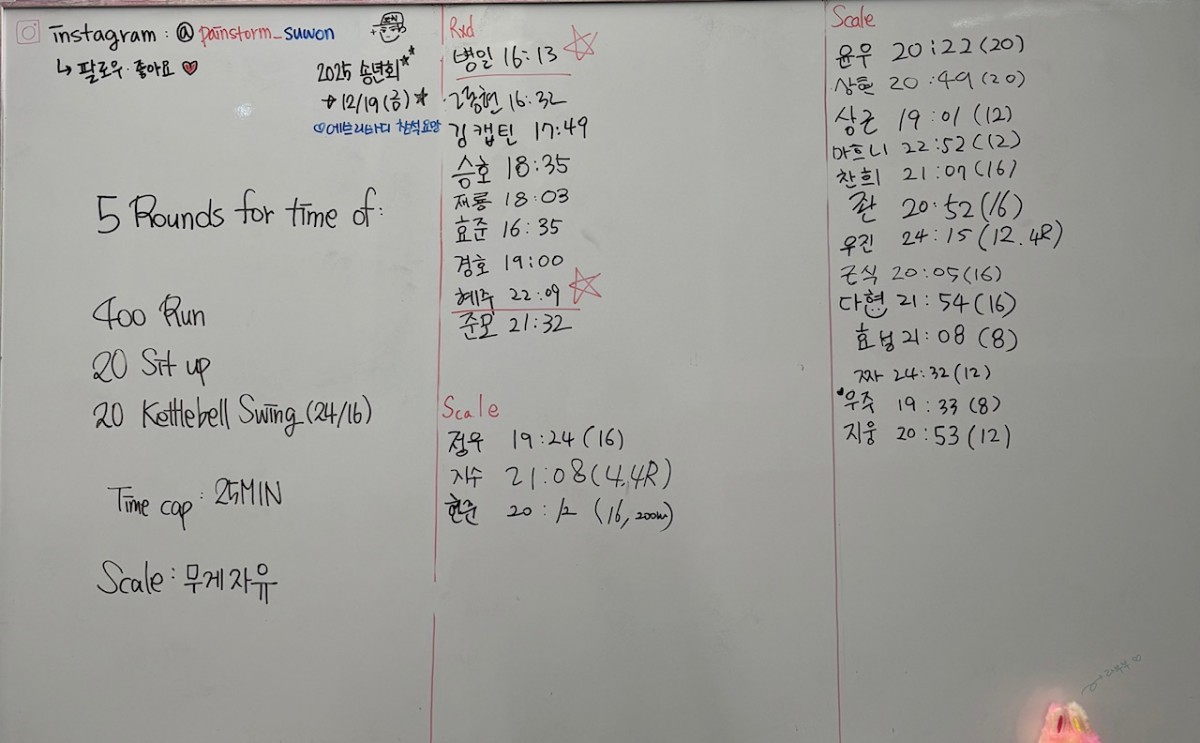 instagram : @ painstorm_suwon
↳ 팔로우·좋아요 ♥
2025 송년회**
★ 12/19 (금) ★
♡에브리바디 참석요망
5 Rounds for time of:
400 Run
20 Sit up
20 Kettlebell Swing (24/16)
Time cap : 25MIN
Scale : 무게자유
Rxd
병일 16:13
16:32
김캡틴 17:49
승호 18:35
재룡 18:03
효준 16:35
경호 19:00
혜주 22:09
준모 21:32
Scale
정우 19:24 (16)
지수 21:08 (4.4R)
현준 20:12 (16, 200m)
Scale
윤우 20:22 (20)
상현 20:49 (20)
상근 19:01 (12)
마프니 22:52 (12)
찬희 21:07 (16)
좐 20:52 (16)
우진 24:15 (12.4R)
근식 20:05 (16)
다현 21:54 (16)
효성 21:08 (8)
짜 24:32 (12)
우주 19:33 (8)
지웅 20:53 (12)